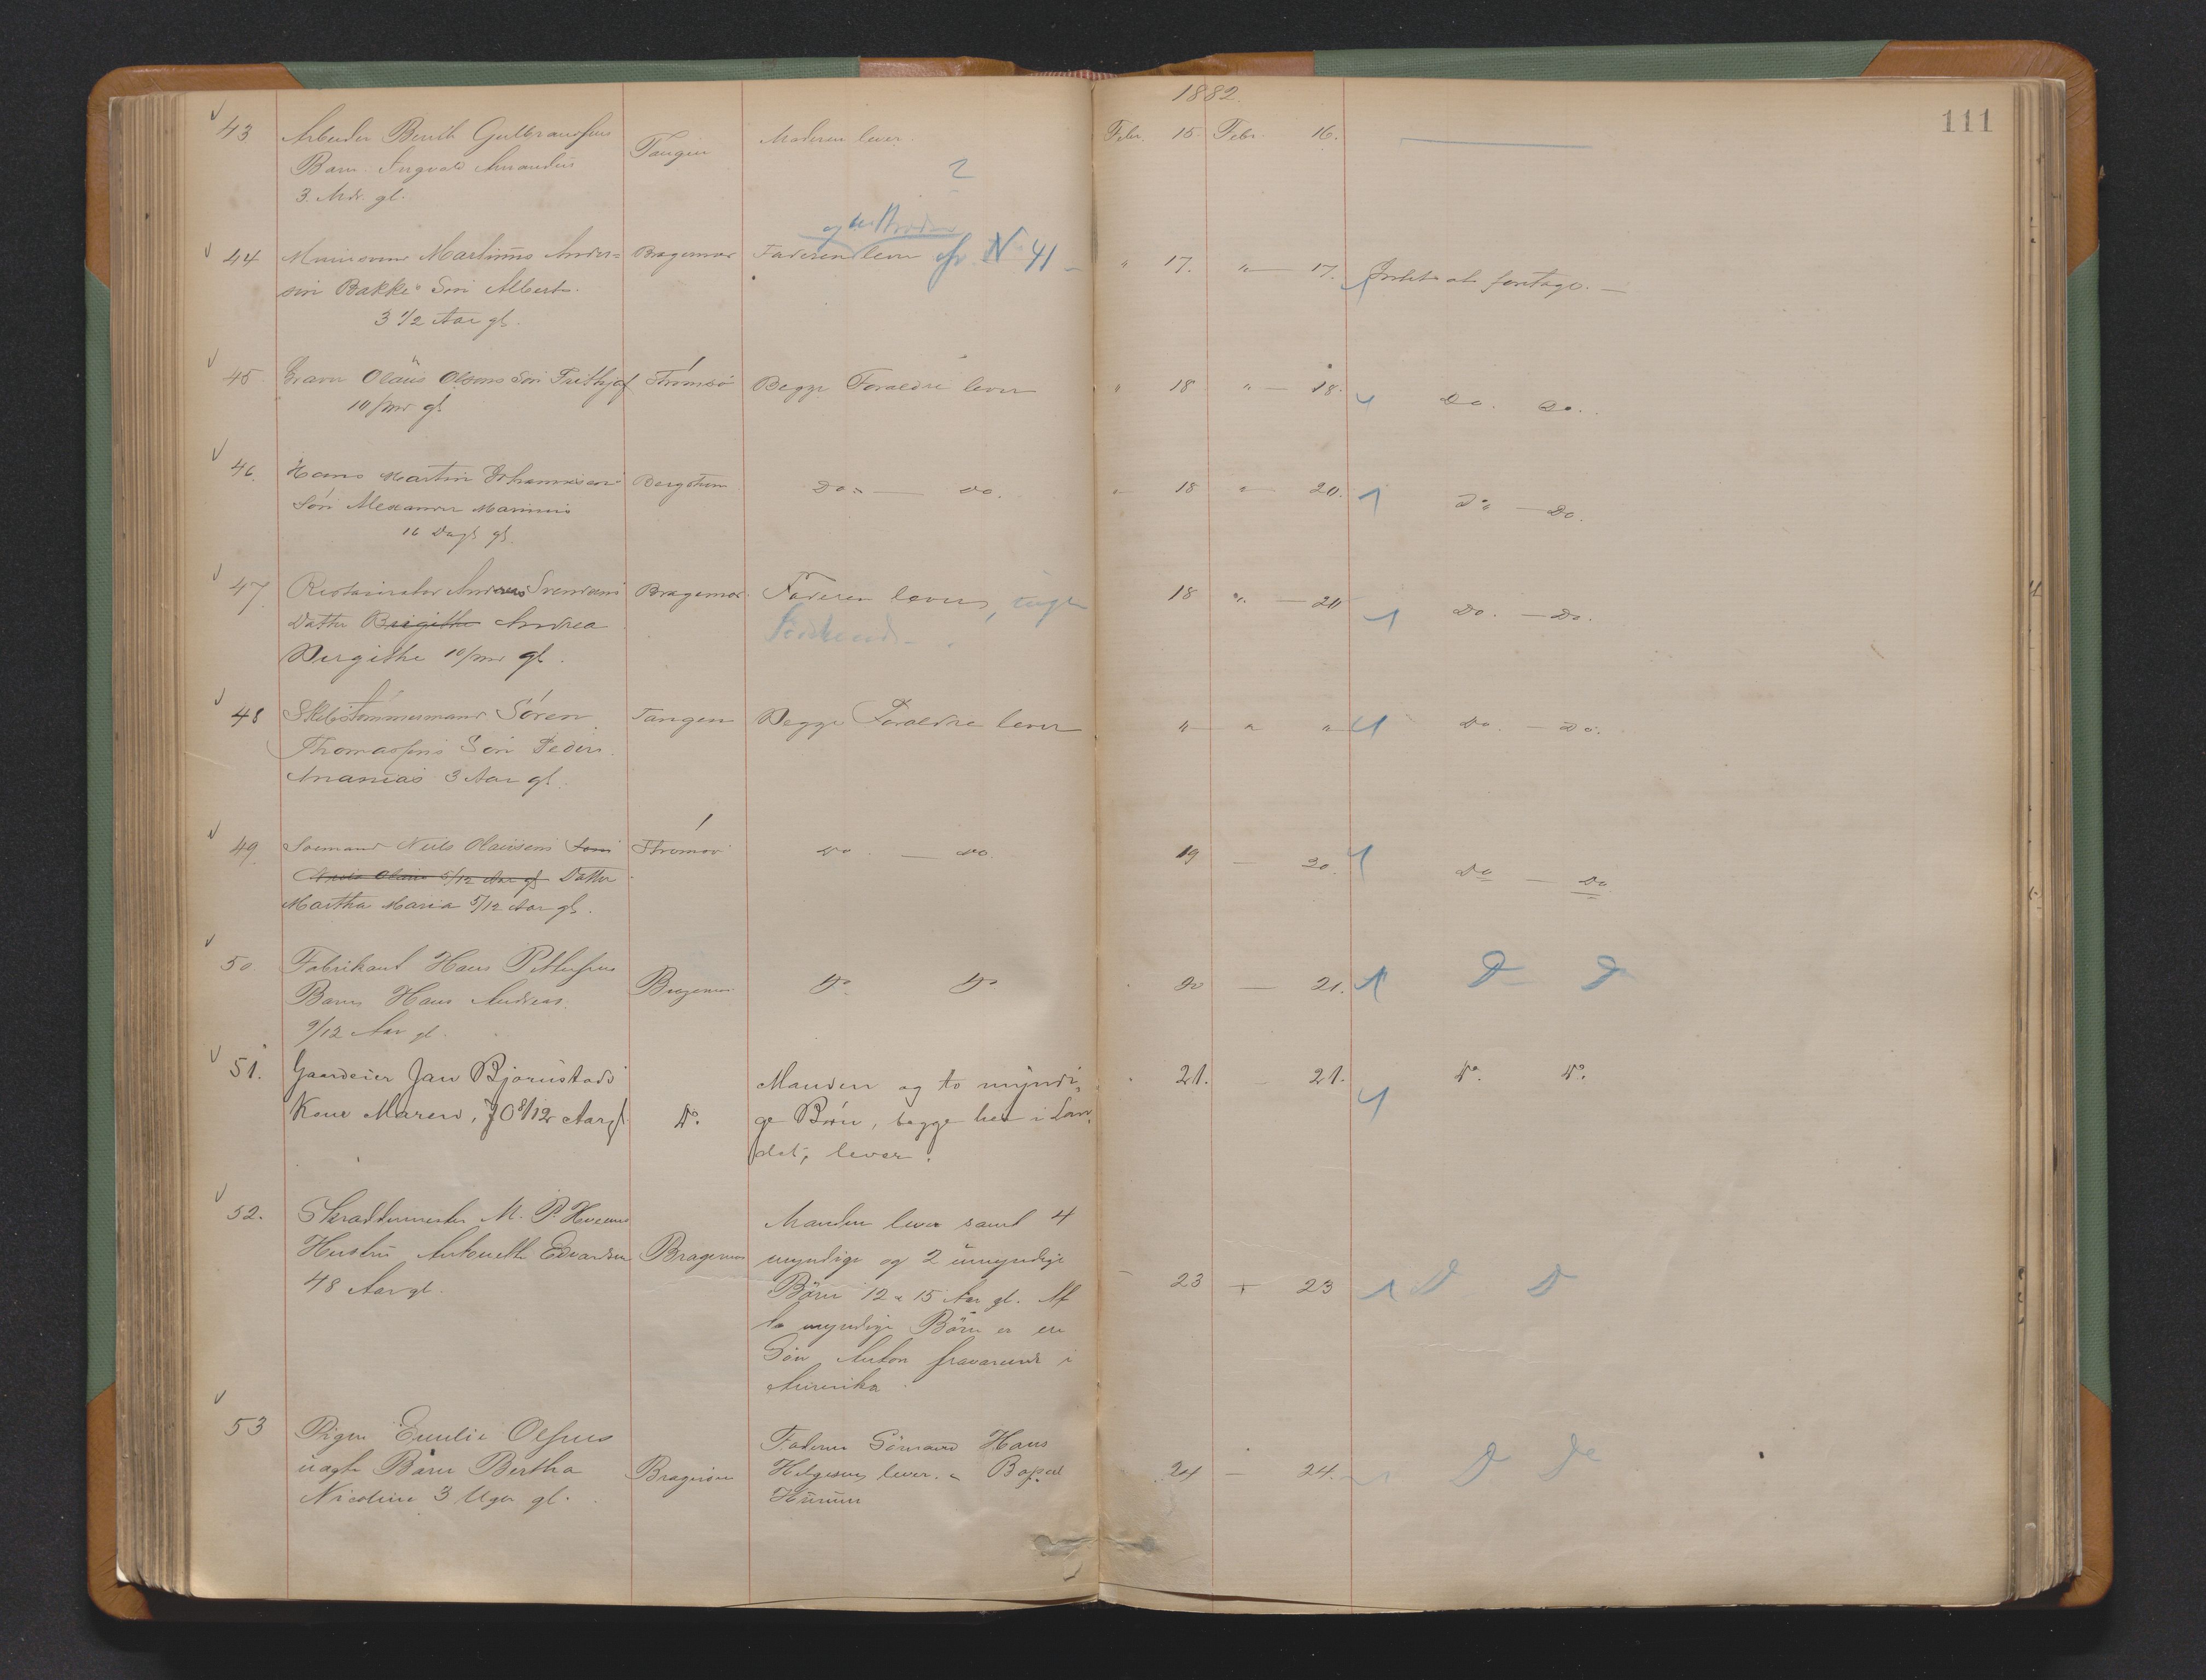 1882.
111
43 Arbeider Bernth Gulbrandsens Tangen Moderen lever. Febr. 15. Febr. 16.
Barn Ingvald Amandus
3. Mdr. gl.
2
og
44 Murersvend Martinus Ander= Bragernæs Faderen lever cfr No 41 " 17. " 17. Intet at foretage.
sen Bakke Søn Albert.
3 1/2 Aar gl.
45 Olaüs Olsens Søn Frithjof Strømsø Begge Forældre lever " 18 " 18. Do. Do.
10/mdr gl
46. Hans Martin Johannesens Do. do. " 18 " 20. Do Do.
Søn Alexander Marinius
16 Dage gl.
47 Restauratør Andreas Svendsens Bragernæs Faderen lever, ingen 18 " 20 Do. Do.
Datter Birgithe Andrea
Bergithe 10/mdr gl.
48 Skibstømmermand Sören Tangen Begge Forældre lever " " " Do. Do.
Thomassens Søn Peder
Ananias 3 Aar gl.
49 Sömand Niels Olaüsens Søn Strømsø do. do. 19 20. Do Do
Niels Olaus 5/12 Aar gl Datter
Martha Maria 5/12 Aar gl.
50 Fabrikant Hans Bragernæs Do Do 20 21. D D
Barn Hans Andreas.
9/12 Aar gl.
51. Gaardeier Jan Björnstads Manden og to myndi= 21. 21. Do. Do.
Kone Maren, 70 8/12 Aar gl. Do. ge Börn, begge her i Lan=
det, lever.
52. Skræddermester M. P. Hveems Manden lever samt 4
Hustru Antonette Edvardsen Bragernæs myndige og 2 umyndige
48 Aar gl. Börn 12 & 15 Aar gl. Af 23 23 D D
to myndige Börn er en
Sön Anton fraværende i
Amerika
53 Pigen Emilie Olsens Faderen Sömand Hans
uægte Barn Bertha Bragernæs Helgesen lever. Bopæl 24 24. D Do
Nicoline 3 Uger gl. Hurum